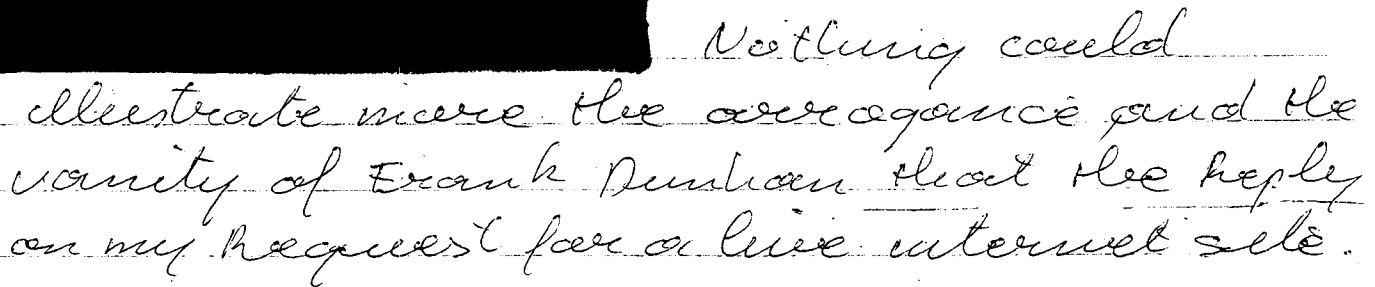 Nothing could
illustrate more the arrogance and the
vanity of Frank Dunhan that the Reply
on my Request for a live internet site.